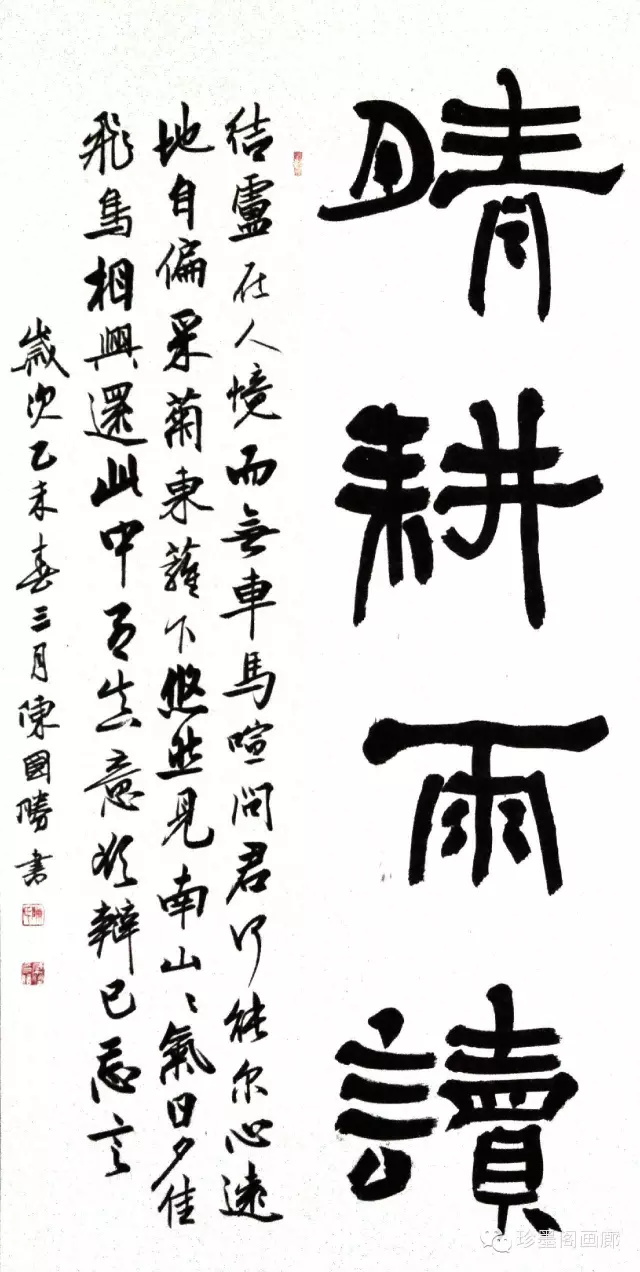 晴耕雨讀
结盧在人境而無車馬喧問君何能尔心遠
地自偏采菊東蘺下悠然見南山々氣日夕佳
飛鳥相與還此中有真意欲辯已忘言
歲次乙未春三月陳國勝書
珍墨阁画廊